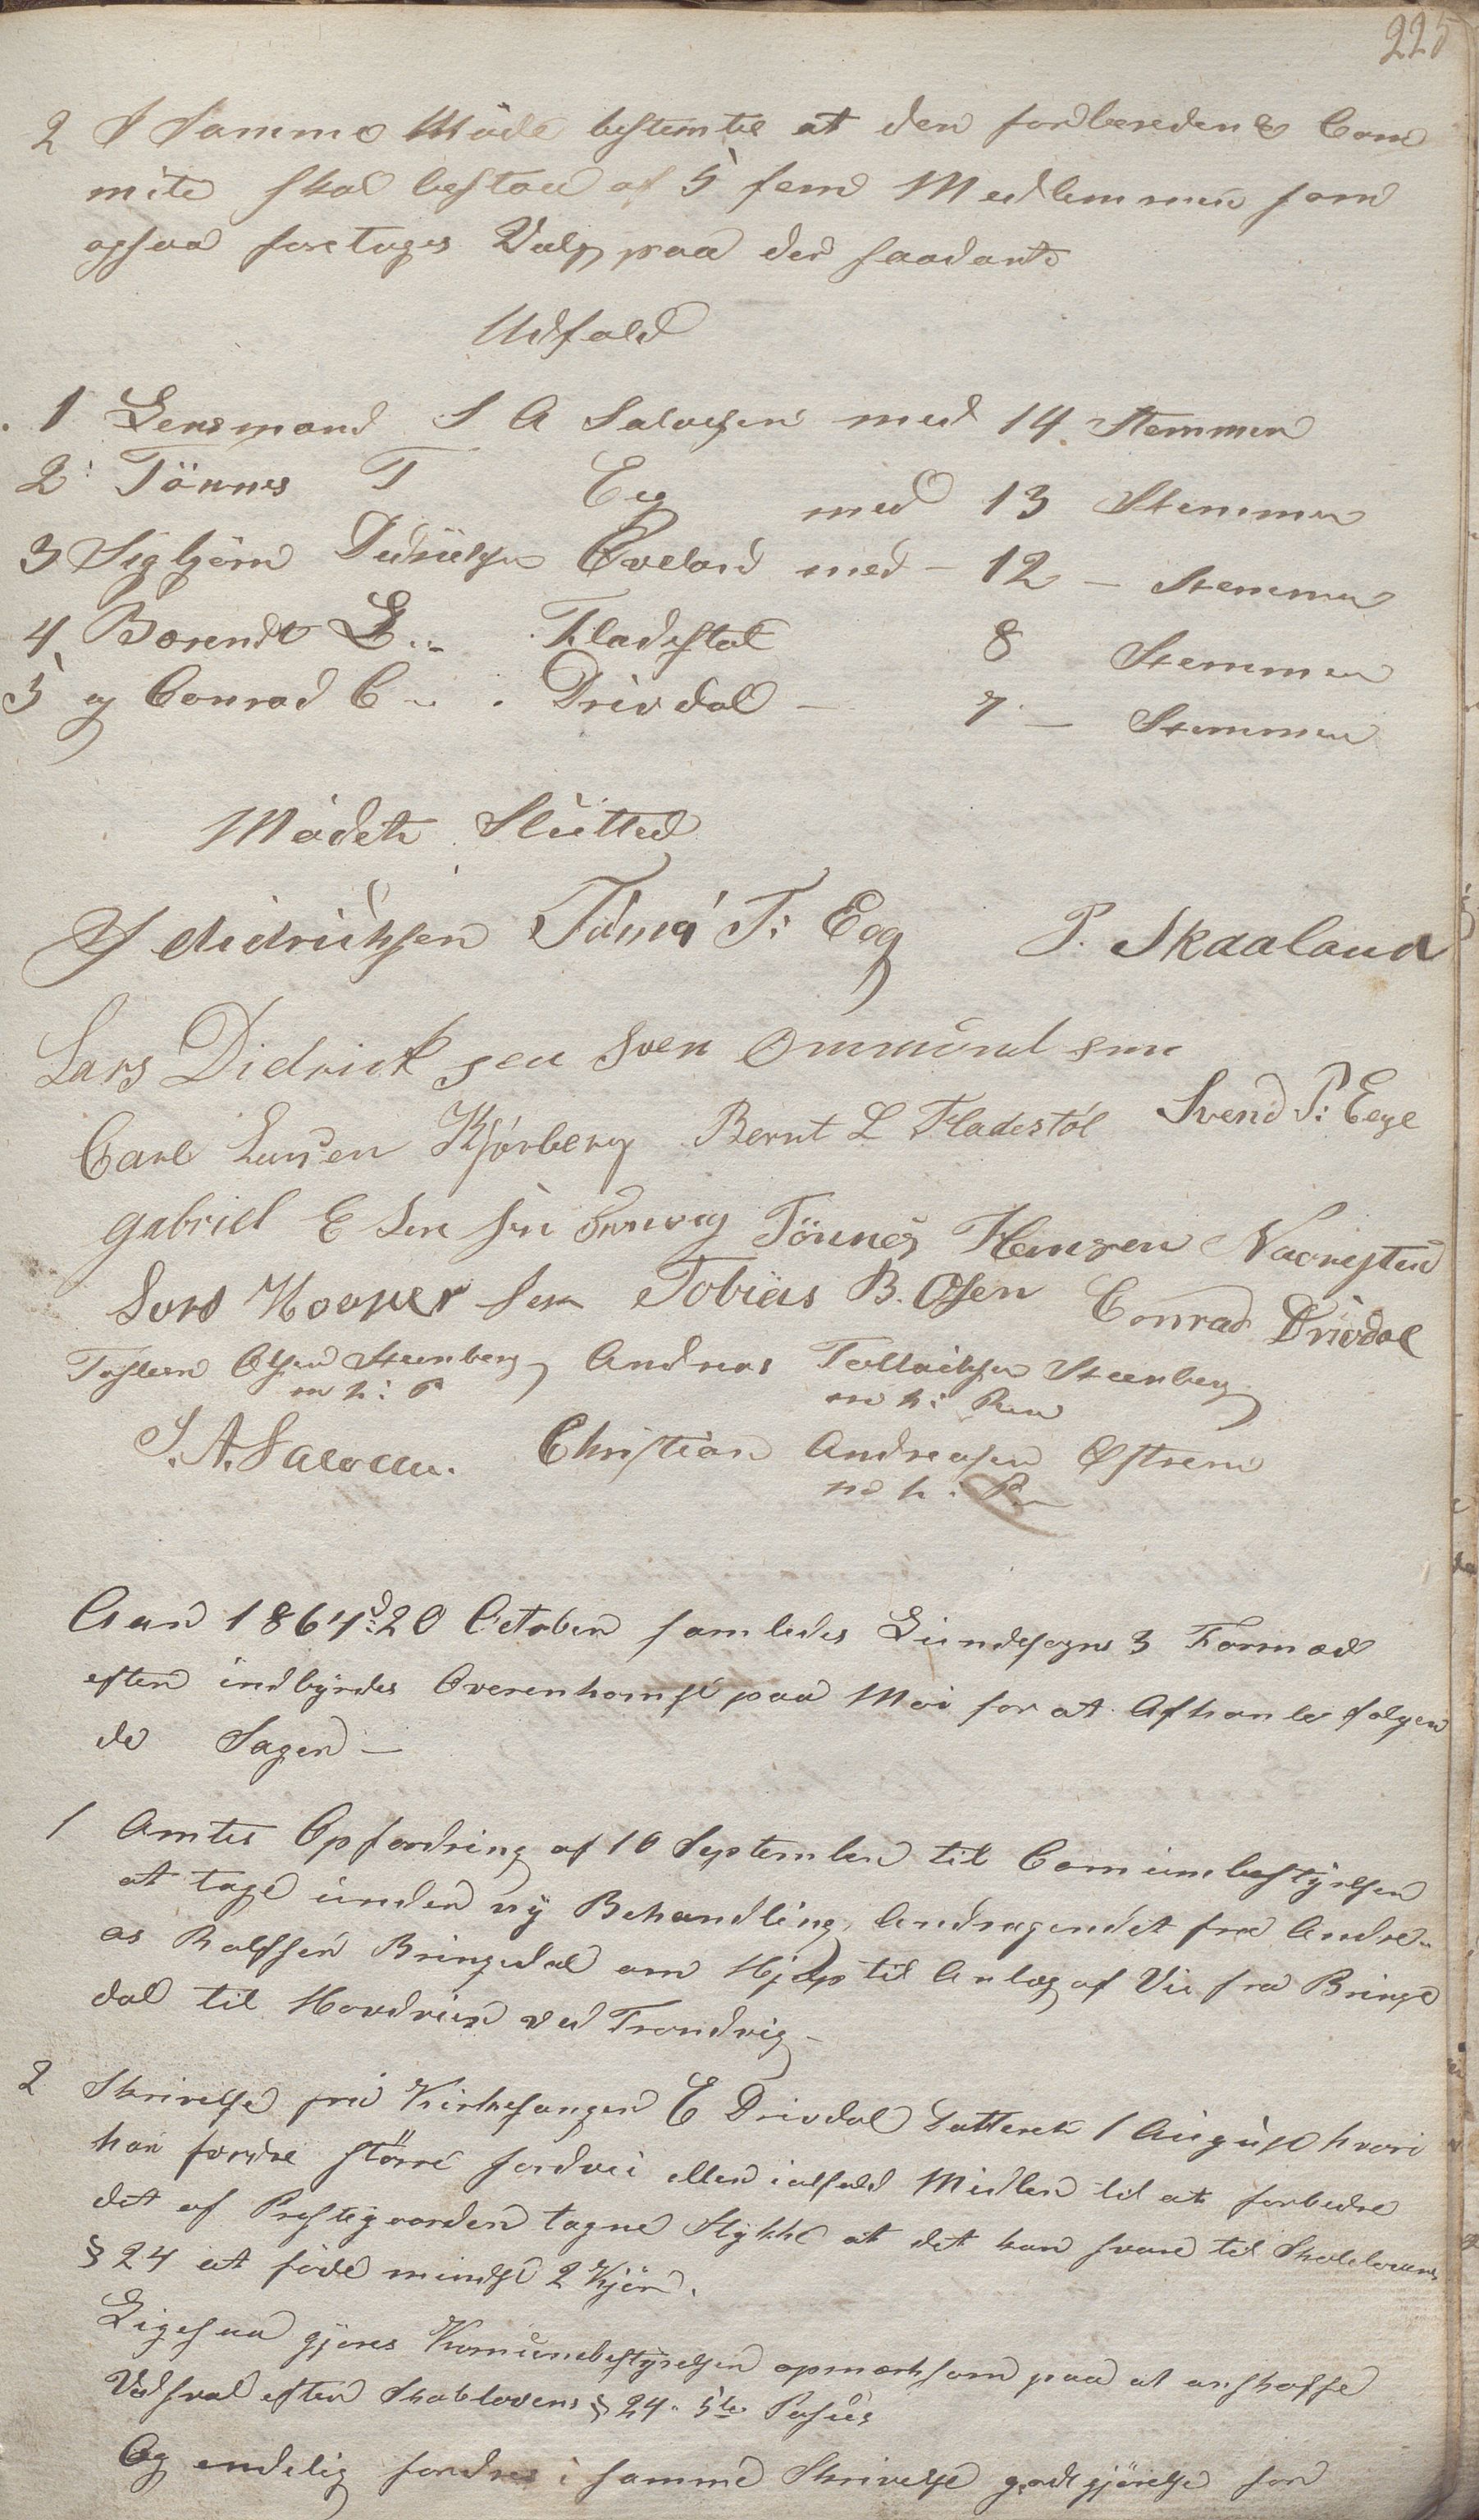 225
2 I Samme Möde bestemtes at den forberedende Com
mite skal bestaa af 5 fem Medlemmer som
ogsaa foretages Valg paa der saadant
Udfald
1 Lensmand S A Salvesen med 14 Stemmer
2 Tönnes T Eeg med 13 Stemmer
3 Sigbjörn Didriksen Qveland med – 12 – Stemmer
4 Berendt L.. Fladestöl 8 Stemmer
5 og Conrad C .. . Drivdal – 7 – Stemmer
Mödet Sluttet
Y Didriksen Tönnes T: Eeg P. Skaaland
Lars Didrick sen Sven Ommund sen
Carl Larsen Kjörberg Bernt L Fladestöl Svend P: Eege
gabriel E Tönnes Hansen Navrestad
Lars Tobias B. Olsen Conrad Drivdal
Torsteen Olsen Steenberg Andreas Tollaksen Steenberg
m h: P m h: Pen
S. A. Salvesen. Christian Andreasen Østrem
m h: Pen
Aar 1864 d: 20 October samledes Lundesogns Formæd
efter indbyrdes Overenkomst paa Moi for at Afhanle følgen
de Sager –
1 Amtes Opfordring af 16 September til Comunebestÿrelsen
at tage under nÿ Behandling, Andragendet fra Andre..
as Rolfsen Bringedal om Hjelp til Anlæg af Vei fra Bringe
dal til Hovdveien ved Trondvig –
2 Skrivelse fra Kirkesanger C Drivdal Datteret 1 August hvori
han fordre större Jordvei eller ialfald Midler til at forbedre
det af Prestegaarden tagne Stykke at det kan svare til Skolelovens
§ 24 at föde mindst 2 Kjör.
Ligesaa gjøres Komunebestyrelsen opmærksom paa at anskaffe
Vedskal efter Skolelovens § 24. 5te Passus
Og endelig fordres i samme Skrivelse godtgjörelse for